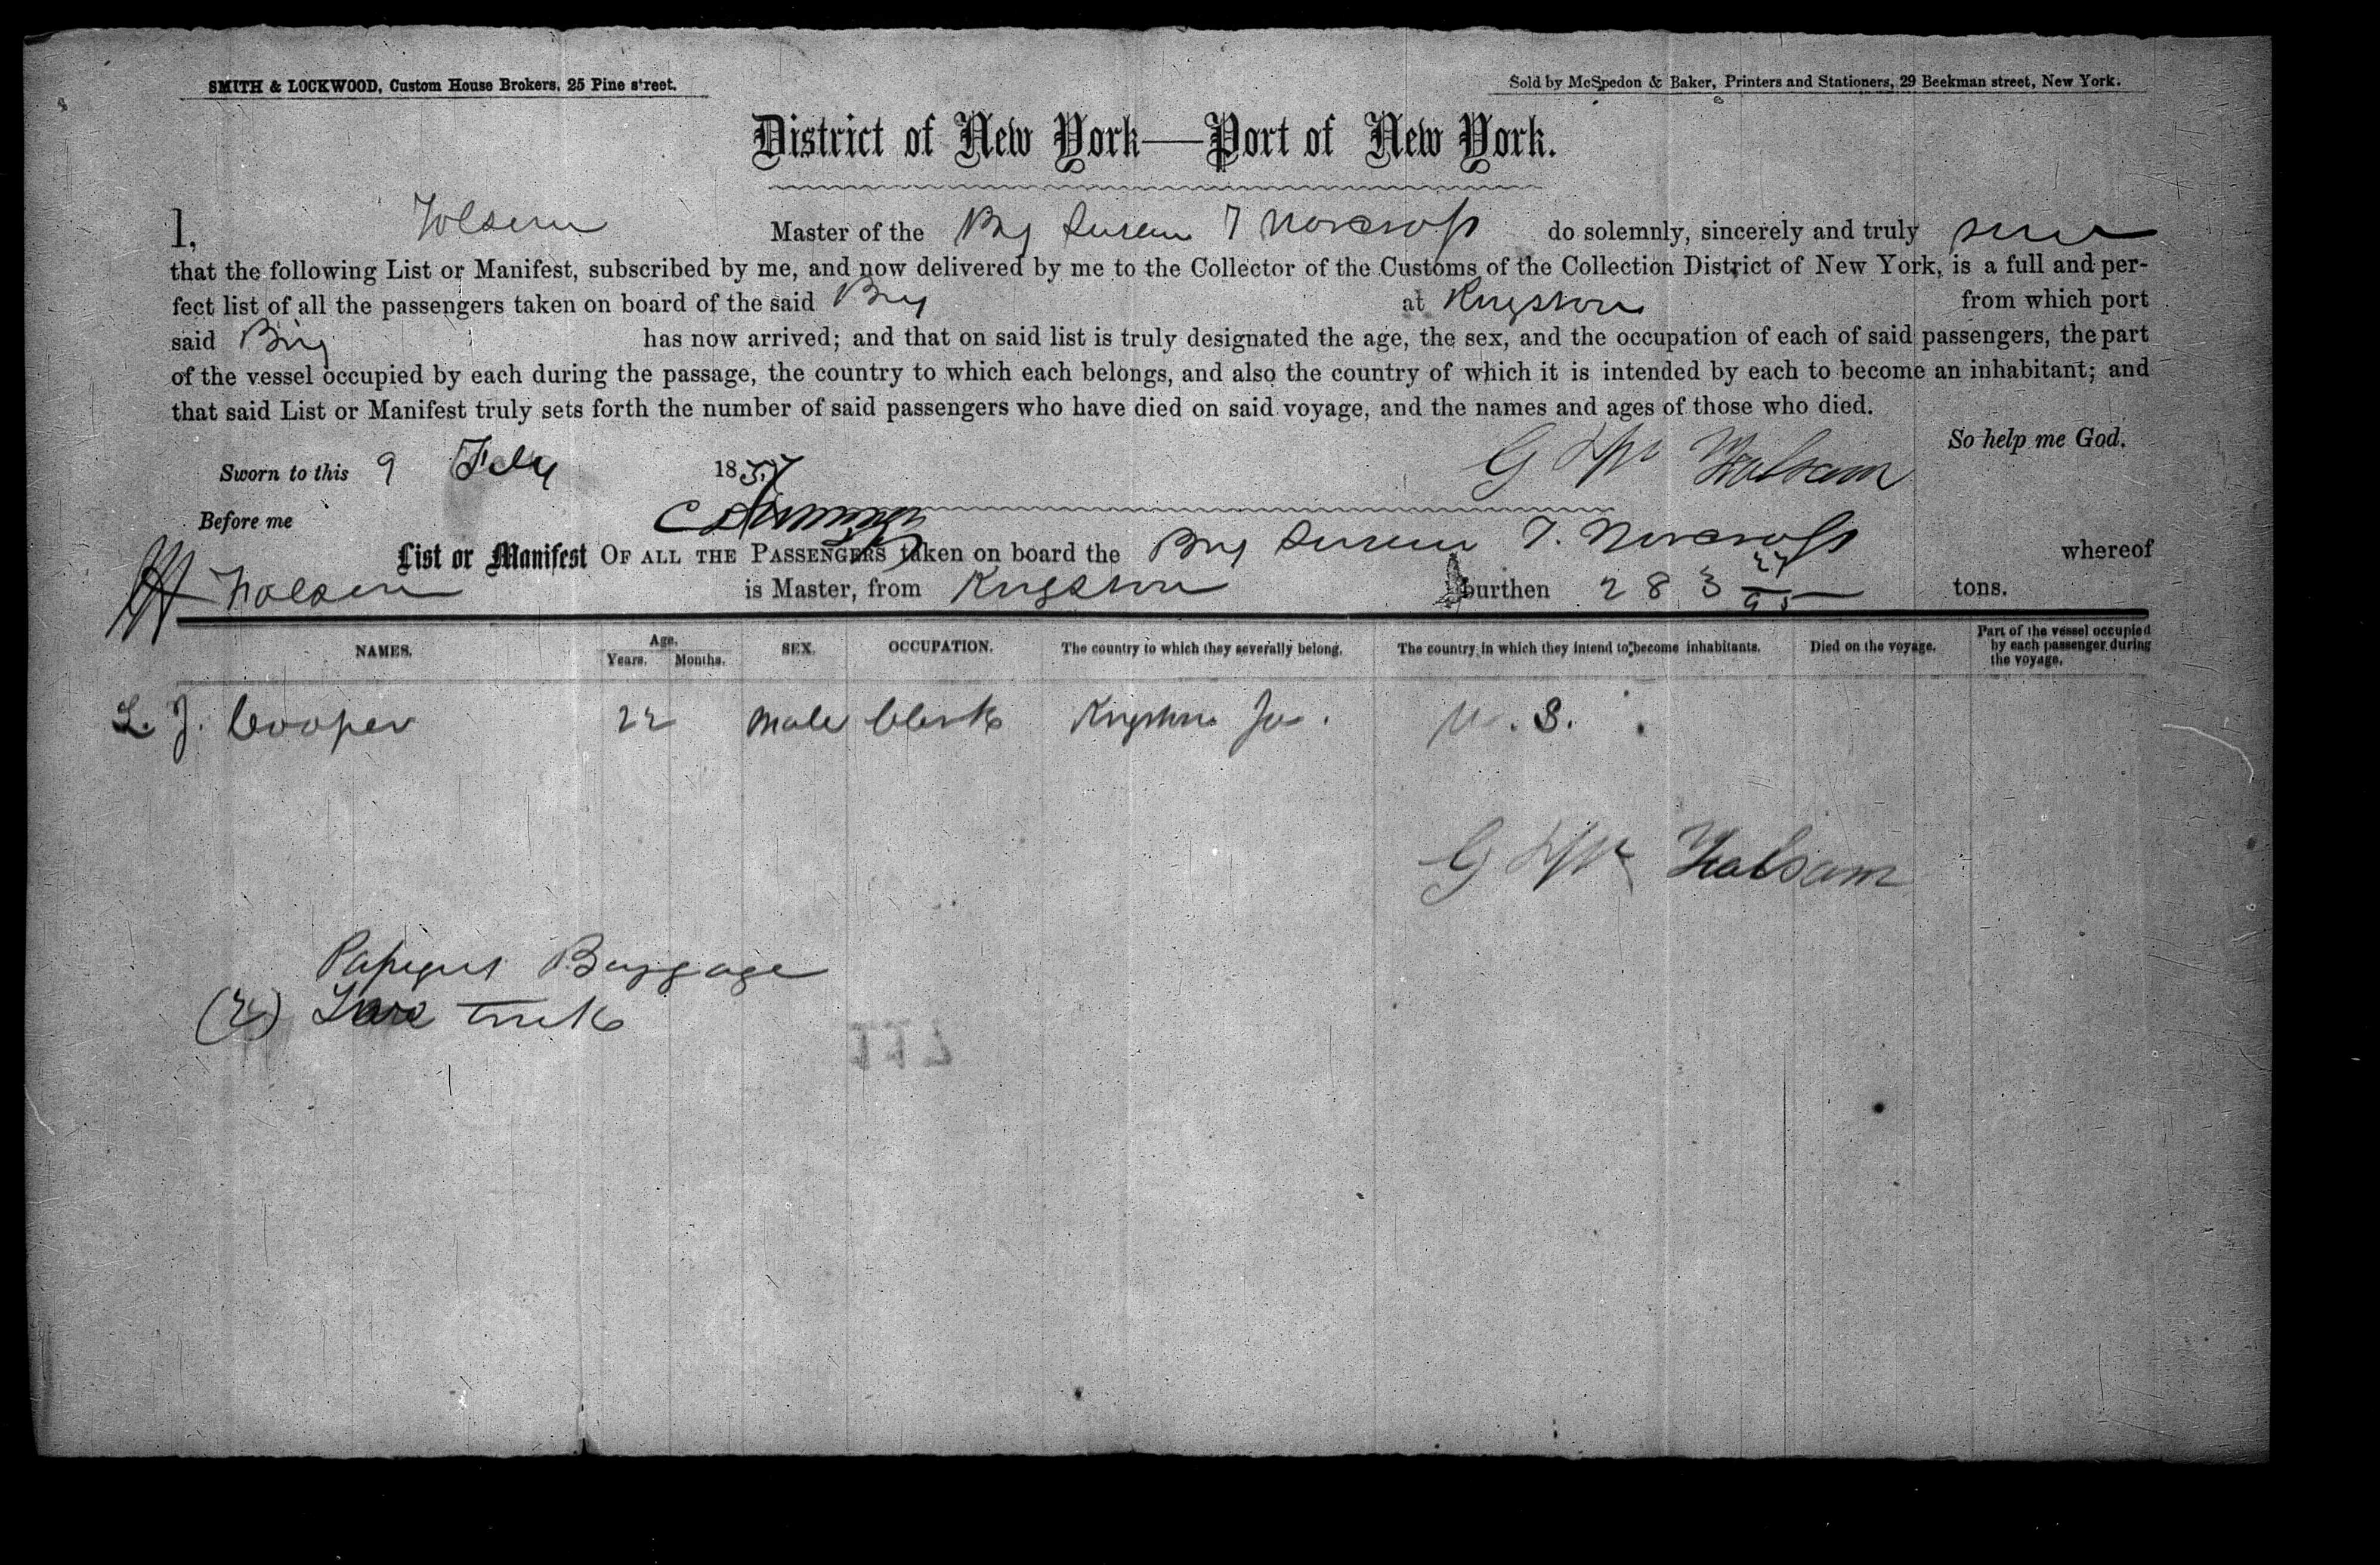 SMITH & LOCKWOOD, Custom House Brokers, 25 Pine street.
Sold by McSpedon & Baker, Printers and Stationers, 29 Beekman street, New York.
District of New York—Port of New York.
I, Folsom Master of the Brig Susan T Norcross do solemnly, sincerely and truly swear
that the following List or Manifest, subscribed by me, and now delivered by me to the Collector of the Customs of the Collection District of New York, is a full and per-
fect list of all the passengers taken on board of the said Brig at Kingston from which port
said Brig has now arrived; and that on said list is truly designated the age, the sex, and the occupation of each of said passengers, the part
of the vessel occupied by each during the passage, the country to which each belongs, and also the country of which it is intended by each to become an inhabitant; and
that said List or Manifest truly sets forth the number of said passengers who have died on said voyage, and the names and ages of those who died.
So help me God.
Sworn to this 9 Feby 1857 G Folsom
Before me
List or Manifest OF ALL THE PASSENGERS taken on board the Brig Susan T. Norcross whereof
Folsom is Master, from Kingston burthen 283 27/95 tons.
NAMES. Age. Years. Months. SEX. OCCUPATION. The country to which they severally belong. The country in which they intend to become inhabitants. Died on the voyage. Part of the vessel occupied by each passenger during the voyage.
L. J. Cooper 22 male Clerk Kingston Ja. U. S.
G Folsom
Baggage